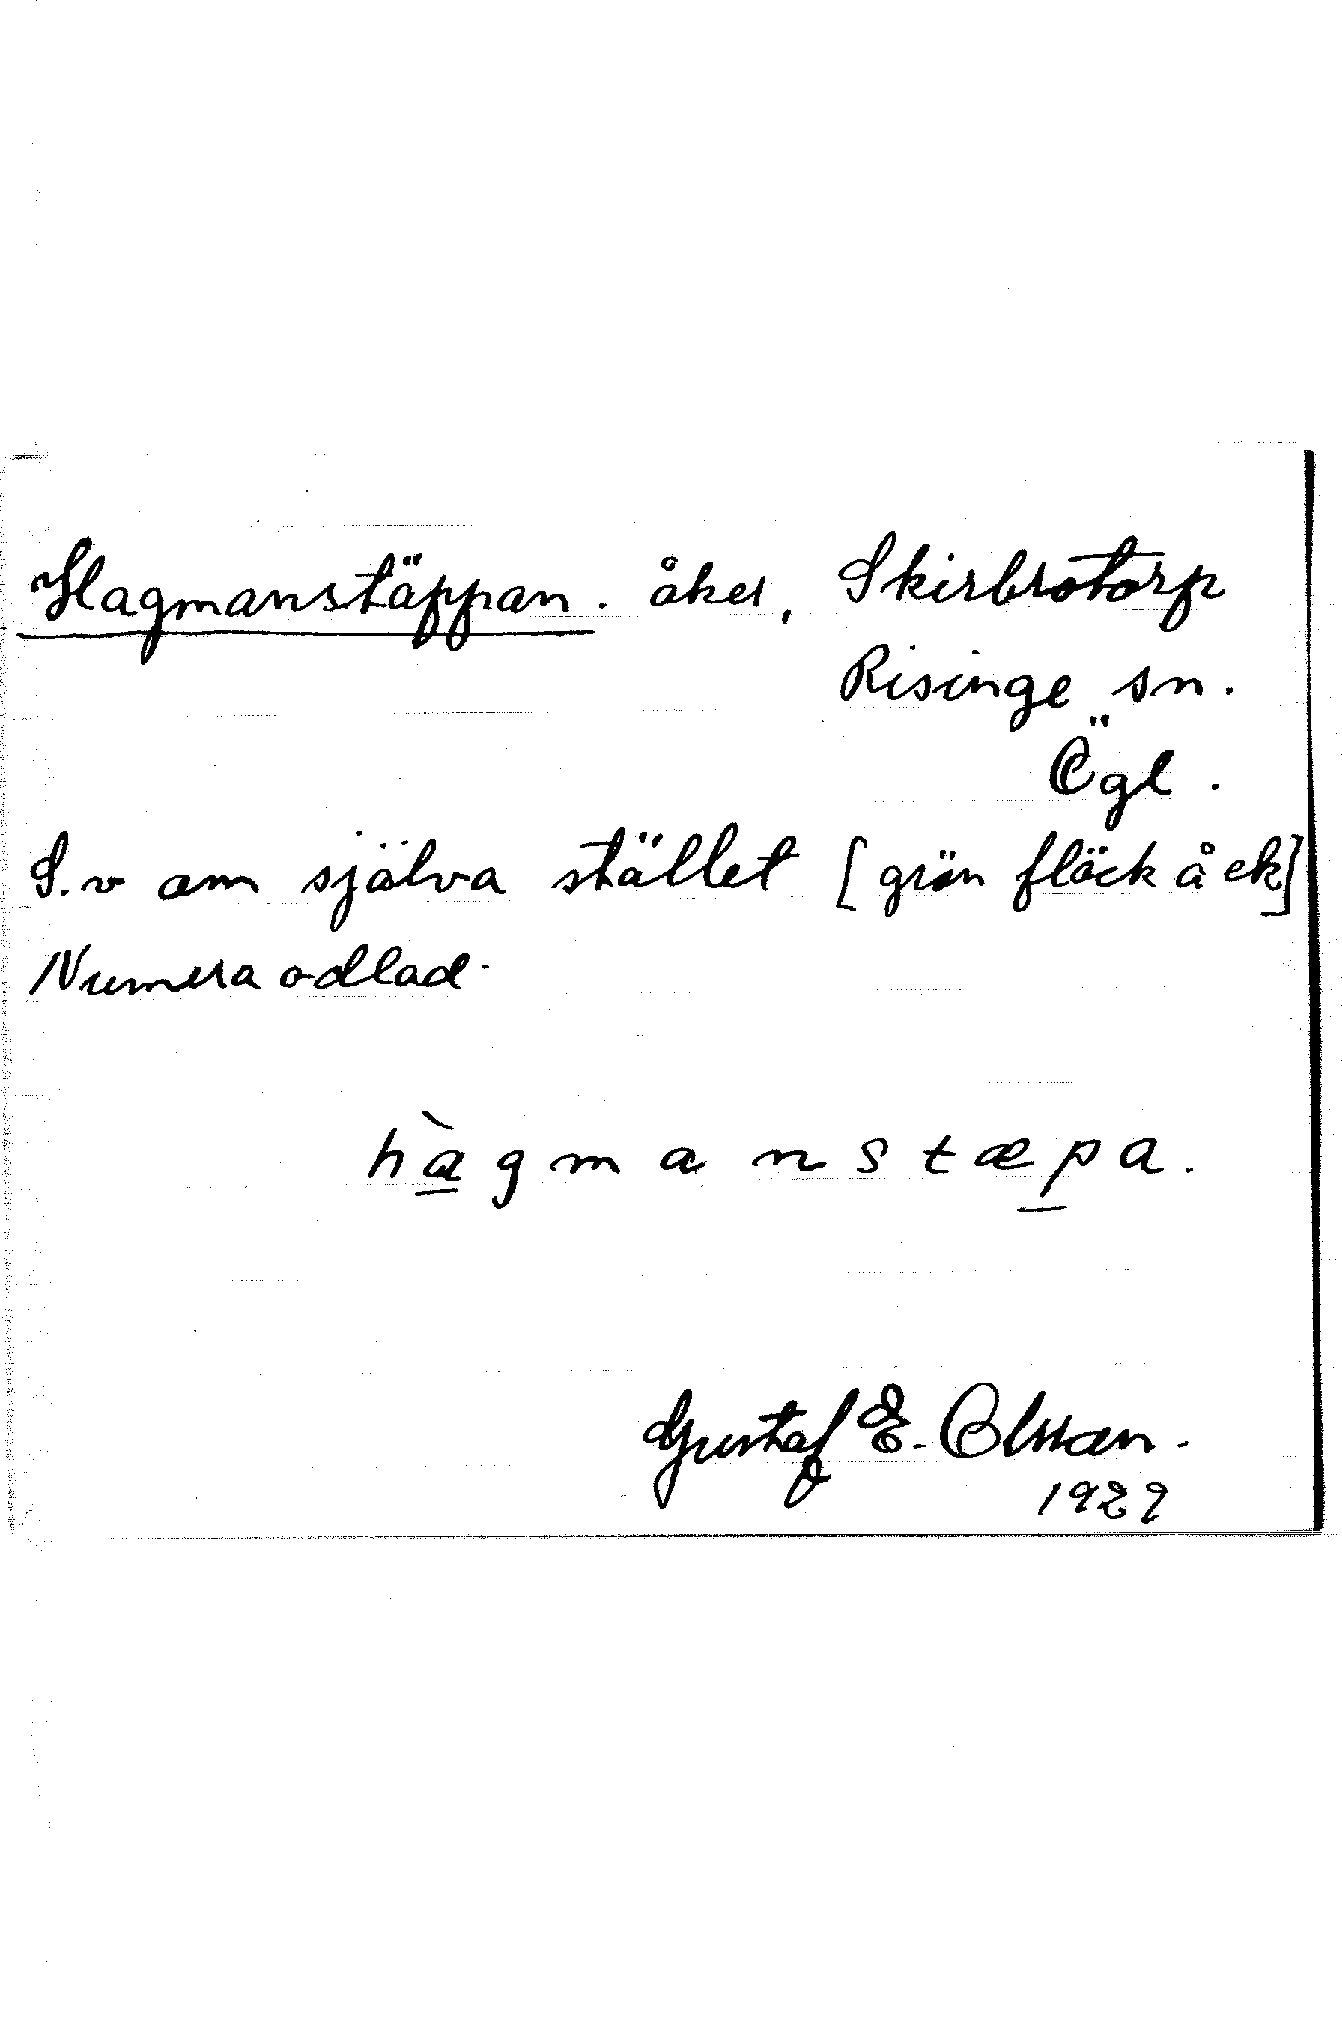 Hagmanstäppan. åker, Skirbrotorp
Risinge sn.
Ögl.
S.v om själva stället [grön fläck å ek]
Numera odlad.
hàgmanstæpa.
Gustaf E. Olsson.
1929